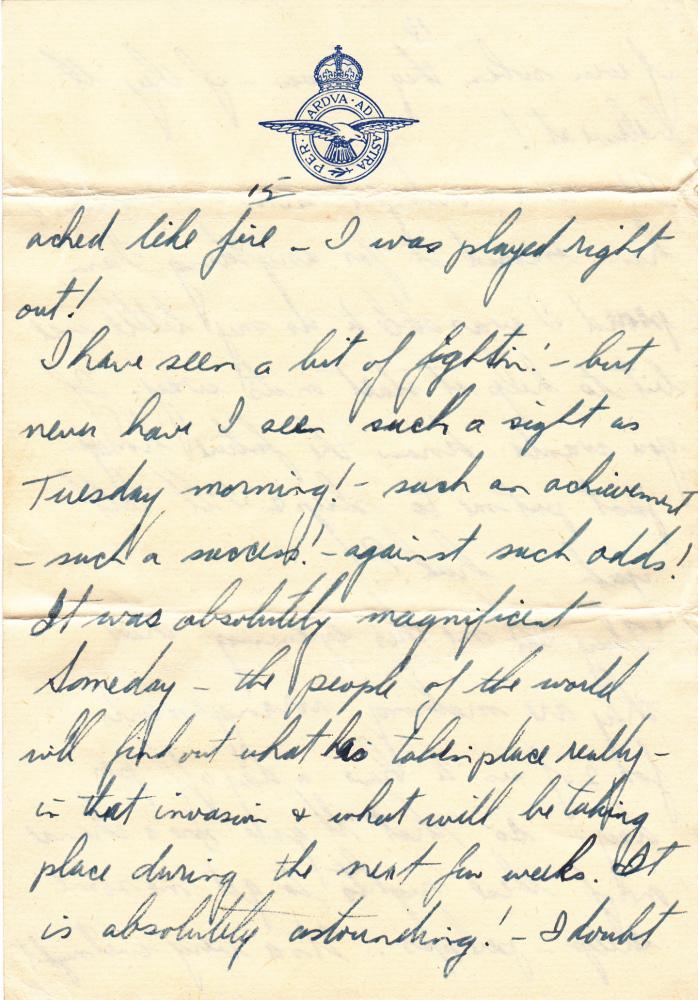 PER · ARDVA · AD ASTRA
15
ached like fire – I was played right
out!
I have seen a bit of fightin'! – but
never have I seen such a sight as
Tuesday morning! – such an achievement
– such a success! – against such odds!
It was absolutely magnificent
Someday – the people of the world
will find out what has taken place really –
in that invasion & what will be taking
place during the next few weeks. It
is absolutely astounding! – I doubt